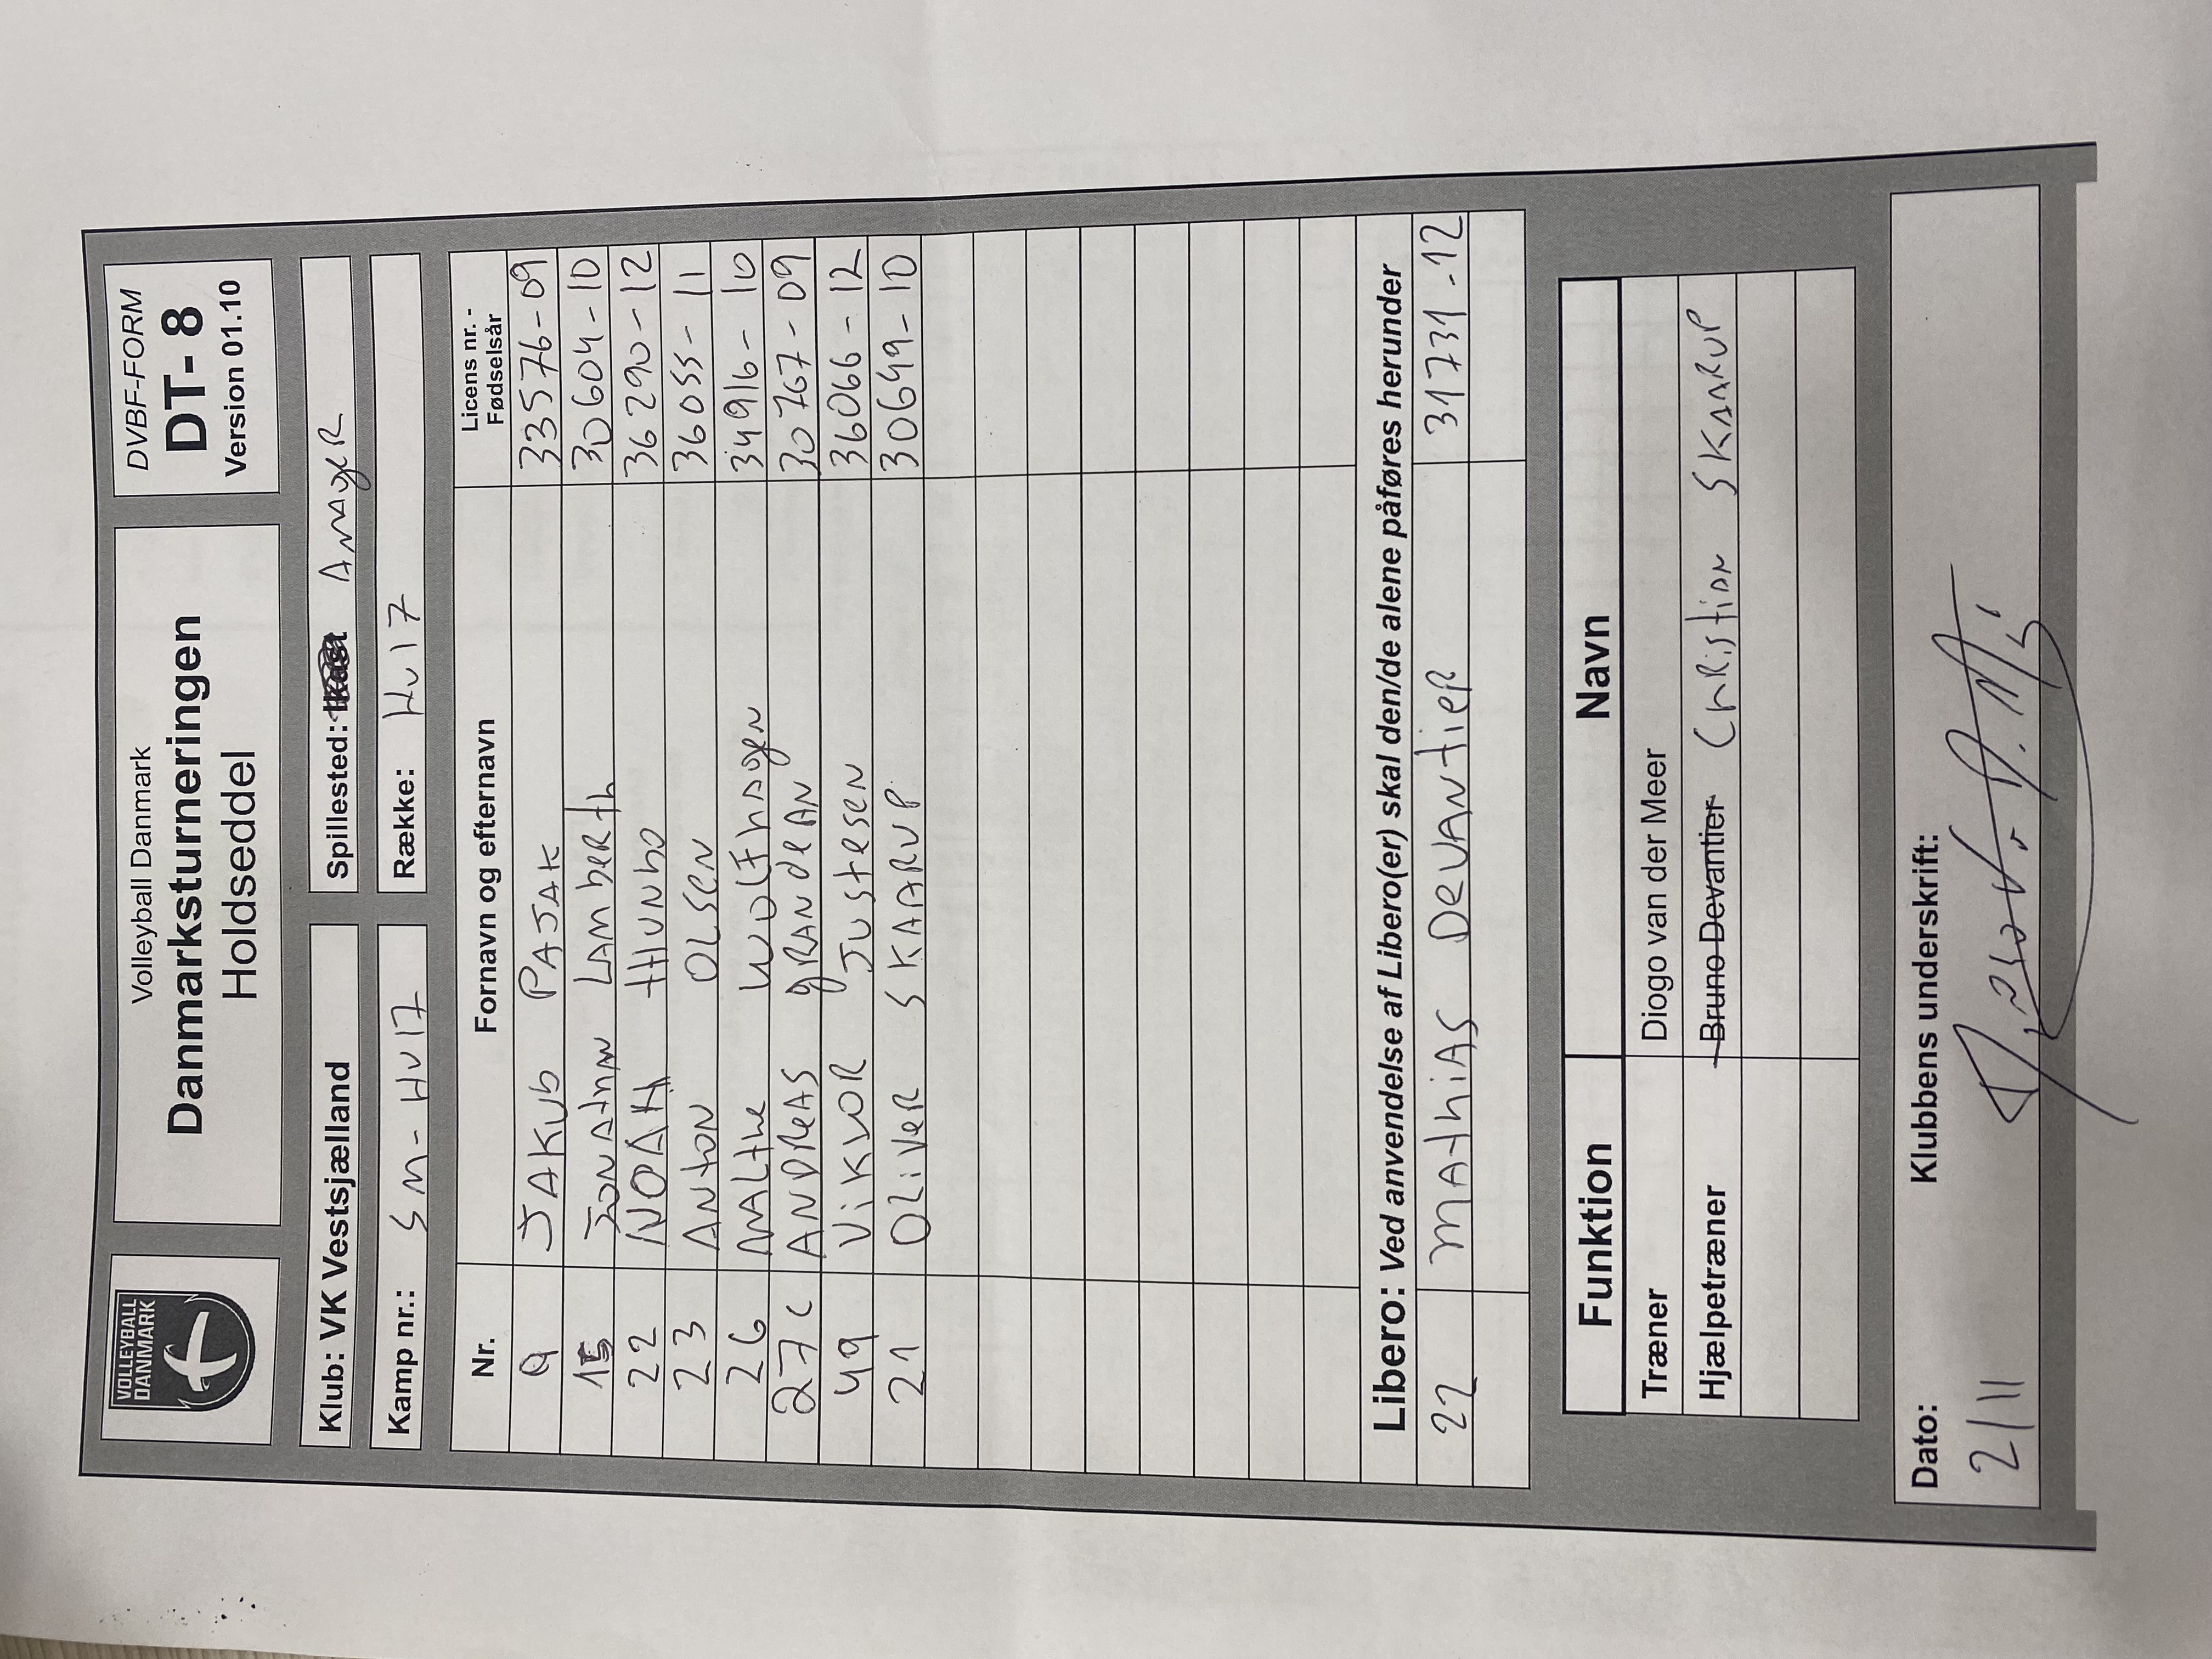 VOLLEYBALL
DANMARK
Volleyball Danmark
Danmarksturneringen
Holdseddel
DVBF-FORM
DT- 8
Version 01.10
Klub: VK Vestsjælland
Spillested: AmageR
Kamp nr.: SM - HU17
Række: HU17
Nr. Fornavn og efternavn Licens nr. - Fødselsår
9 JAKUb PAJAK 33576-09
15 JONAthAN LAMbERth 30604-10
22 NOAH 36290-12
23 ANtON OLSEN 36055-11
26 MALthe WOLFhAgen 34916-10
27 C ANDReAS gRANdeAN 30767-09
49 ViKtOR JUStesEN 36066-12
21 OLiVeR SKAARUP 30649-10
Libero: Ved anvendelse af Libero(er) skal den/de alene påføres herunder
22 MAthiAS DeVANtieR 31731-12
Funktion Navn
Træner Diogo van der Meer
Hjælpetræner Bruno Devantier ChRiStiAN SKAARUP
Dato: Klubbens underskrift:
2/11